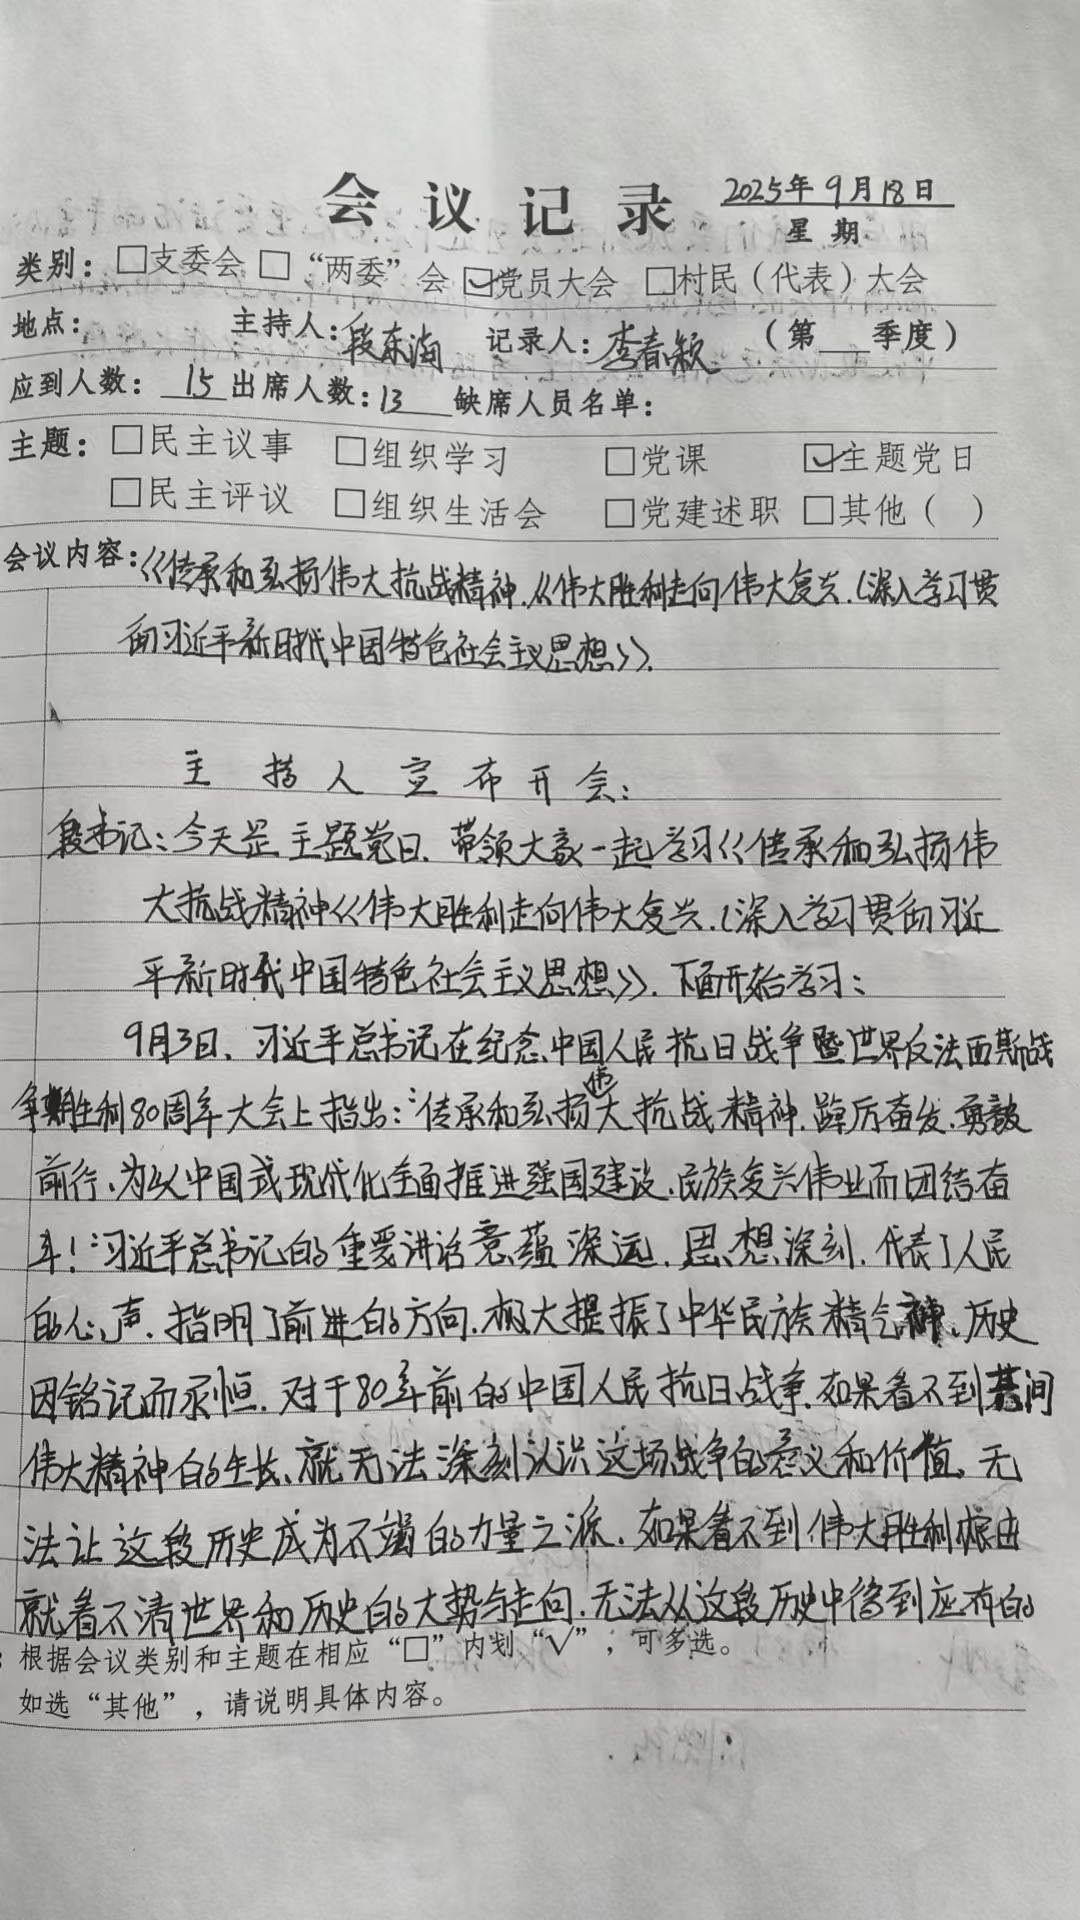 会议记录 2025年9月18日
星期
类别：□支委会 □“两委”会 ☑党员大会 □村民（代表）大会
地点： 主持人：段东海 记录人：李春颖 （第__季度）
应到人数：15 出席人数：13 缺席人员名单：
主题：□民主议事 □组织学习 □党课 ☑主题党日
□民主评议 □组织生活会 □党建述职 □其他（ ）
会议内容：《传承和弘扬伟大抗战精神.从伟大胜利走向伟大复兴.(深入学习贯
彻习近平新时代中国特色社会主义思想》》.
主持人宣布开会：
段书记：今天是主题党日、带领大家一起学习《传承和弘扬伟
大抗战精神《伟大胜利走向伟大复兴.(深入学习贯彻习近
平新时代中国特色社会主义思想》》.下面开始学习：
9月3日、习近平总书记在纪念中国人民抗日战争暨世界反法西斯战
争胜利80周年大会上指出：“传承和弘扬伟大抗战精神.踔厉奋发.勇毅
前行、为以中国式现代化全面推进强国建设、民族复兴伟业而团结奋
斗！”习近平总书记的重要讲话意蕴深远.思想深刻.代表了人民
的心声.指明了前进的方向.极大提振了中华民族精气神、历史
因铭记而永恒.对于80年前的中国人民抗日战争.如果看不到其间
伟大精神的生长、就无法深刻认识这场战争的意义和价值、无
法让这段历史成为不竭的力量之源.如果看不到伟大胜利根由
就看不清世界和历史的大势与走向.无法从这段历史中得到应有的
：根据会议类别和主题在相应“□”内划“√”，可多选。
如选“其他”，请说明具体内容。